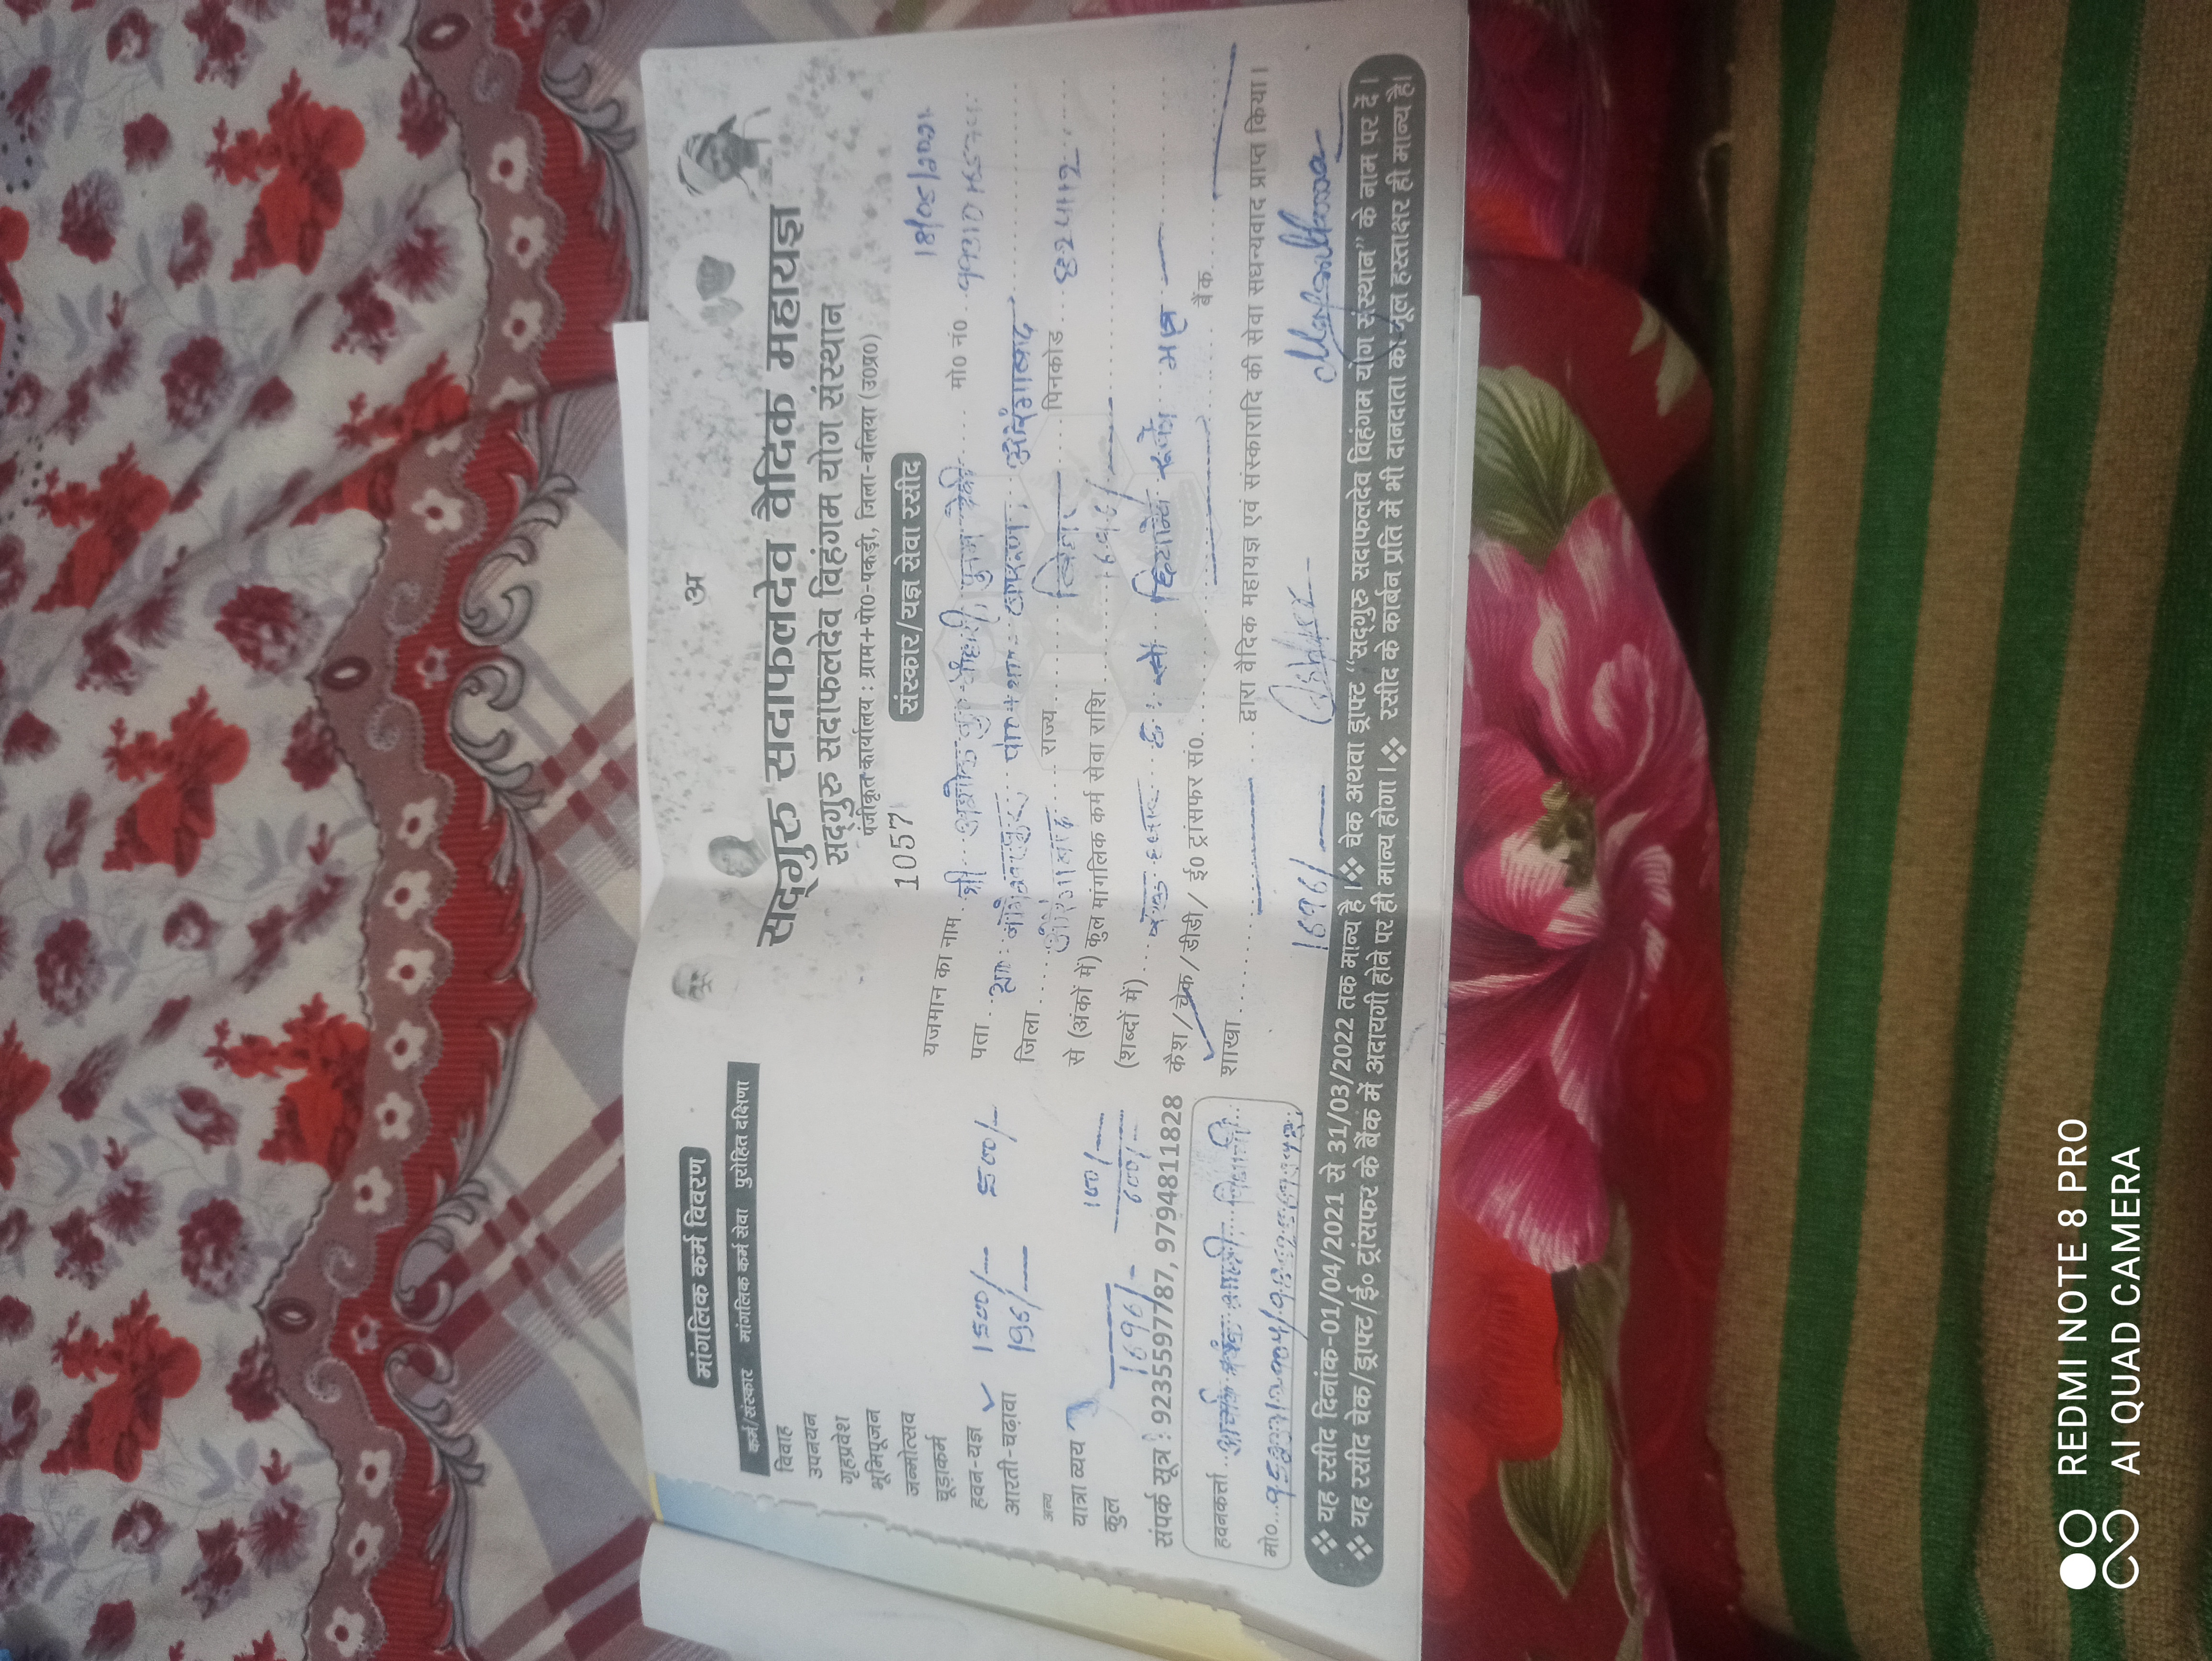 अ
सद्गुरु सदाफलदेव वैदिक महायज्ञ
सद्गुरु सदाफलदेव विहंगम योग संस्थान
पंजीकृत कार्यालय : ग्राम+पो0-पकड़ी, जिला-बलिया (उ0प्र0)
1057
संस्कार/यज्ञ सेवा रसीद
यजमान का नाम श्री मो0 नं0
पता औरंगाबाद
जिला औरंगाबाद राज्य बिहार पिनकोड
से (अंकों में) कुल मांगलिक कर्म सेवा राशि 1696/
(शब्दों में) एक हजार छः सौ छियानवे रूपये मात्र
कैश/चेक/डीडी/ ई0 ट्रांसफर सं0 बैंक
शाखा द्वारा वैदिक महायज्ञ एवं संस्कारादि की सेवा सधन्यवाद प्राप्त किया।
1696/
मांगलिक कर्म विवरण
कर्म/संस्कार मांगलिक कर्म सेवा पुरोहित दक्षिणा
विवाह
उपनयन
गृहप्रवेश
भूमिपूजन
जन्मोत्सव
चूड़ाकर्म
हवन-यज्ञ ✓ 1500/ 500/
आरती-चढ़ावा 196/
अन्य
यात्रा व्यय 100/
कुल 1696/- 600/-
संपर्क सूत्र : 9235597787, 9794811828
हवनकर्त्ता
मो0
❖ यह रसीद दिनांक-01/04/2021 से 31/03/2022 तक मान्य है। ❖ चेक अथवा ड्राफ्ट "सद्गुरु सदाफलदेव विहंगम योग संस्थान" के नाम पर दें।
❖ यह रसीद चेक/ड्राफ्ट/ई० ट्रांसफर के बैंक में अदायगी होने पर ही मान्य होगा। ❖ रसीद के कार्बन प्रति में भी दानदाता का मूल हस्ताक्षर ही मान्य है।
REDMI NOTE 8 PRO
AI QUAD CAMERA